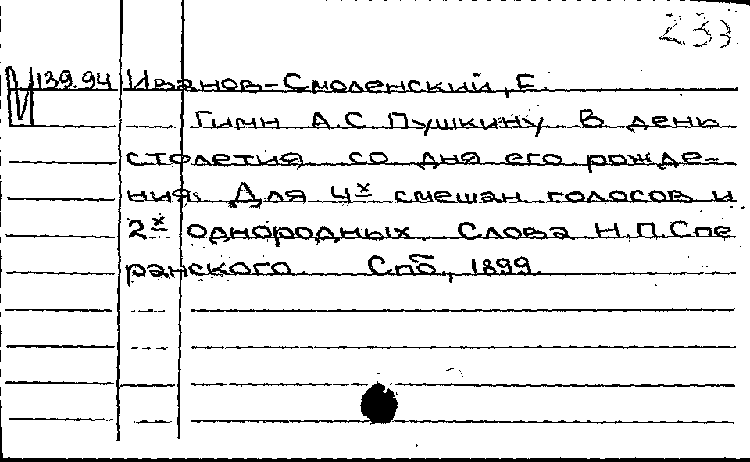 233
М 139.94 Иванов-Смоленский, Е.
Гимн А.С. Пушкину В день
столетия со дня его рожде-
ния. Для 4х смешан. голосов и
2х однородных. Слова Н.П.Спе
ранского. Спб., 1899.